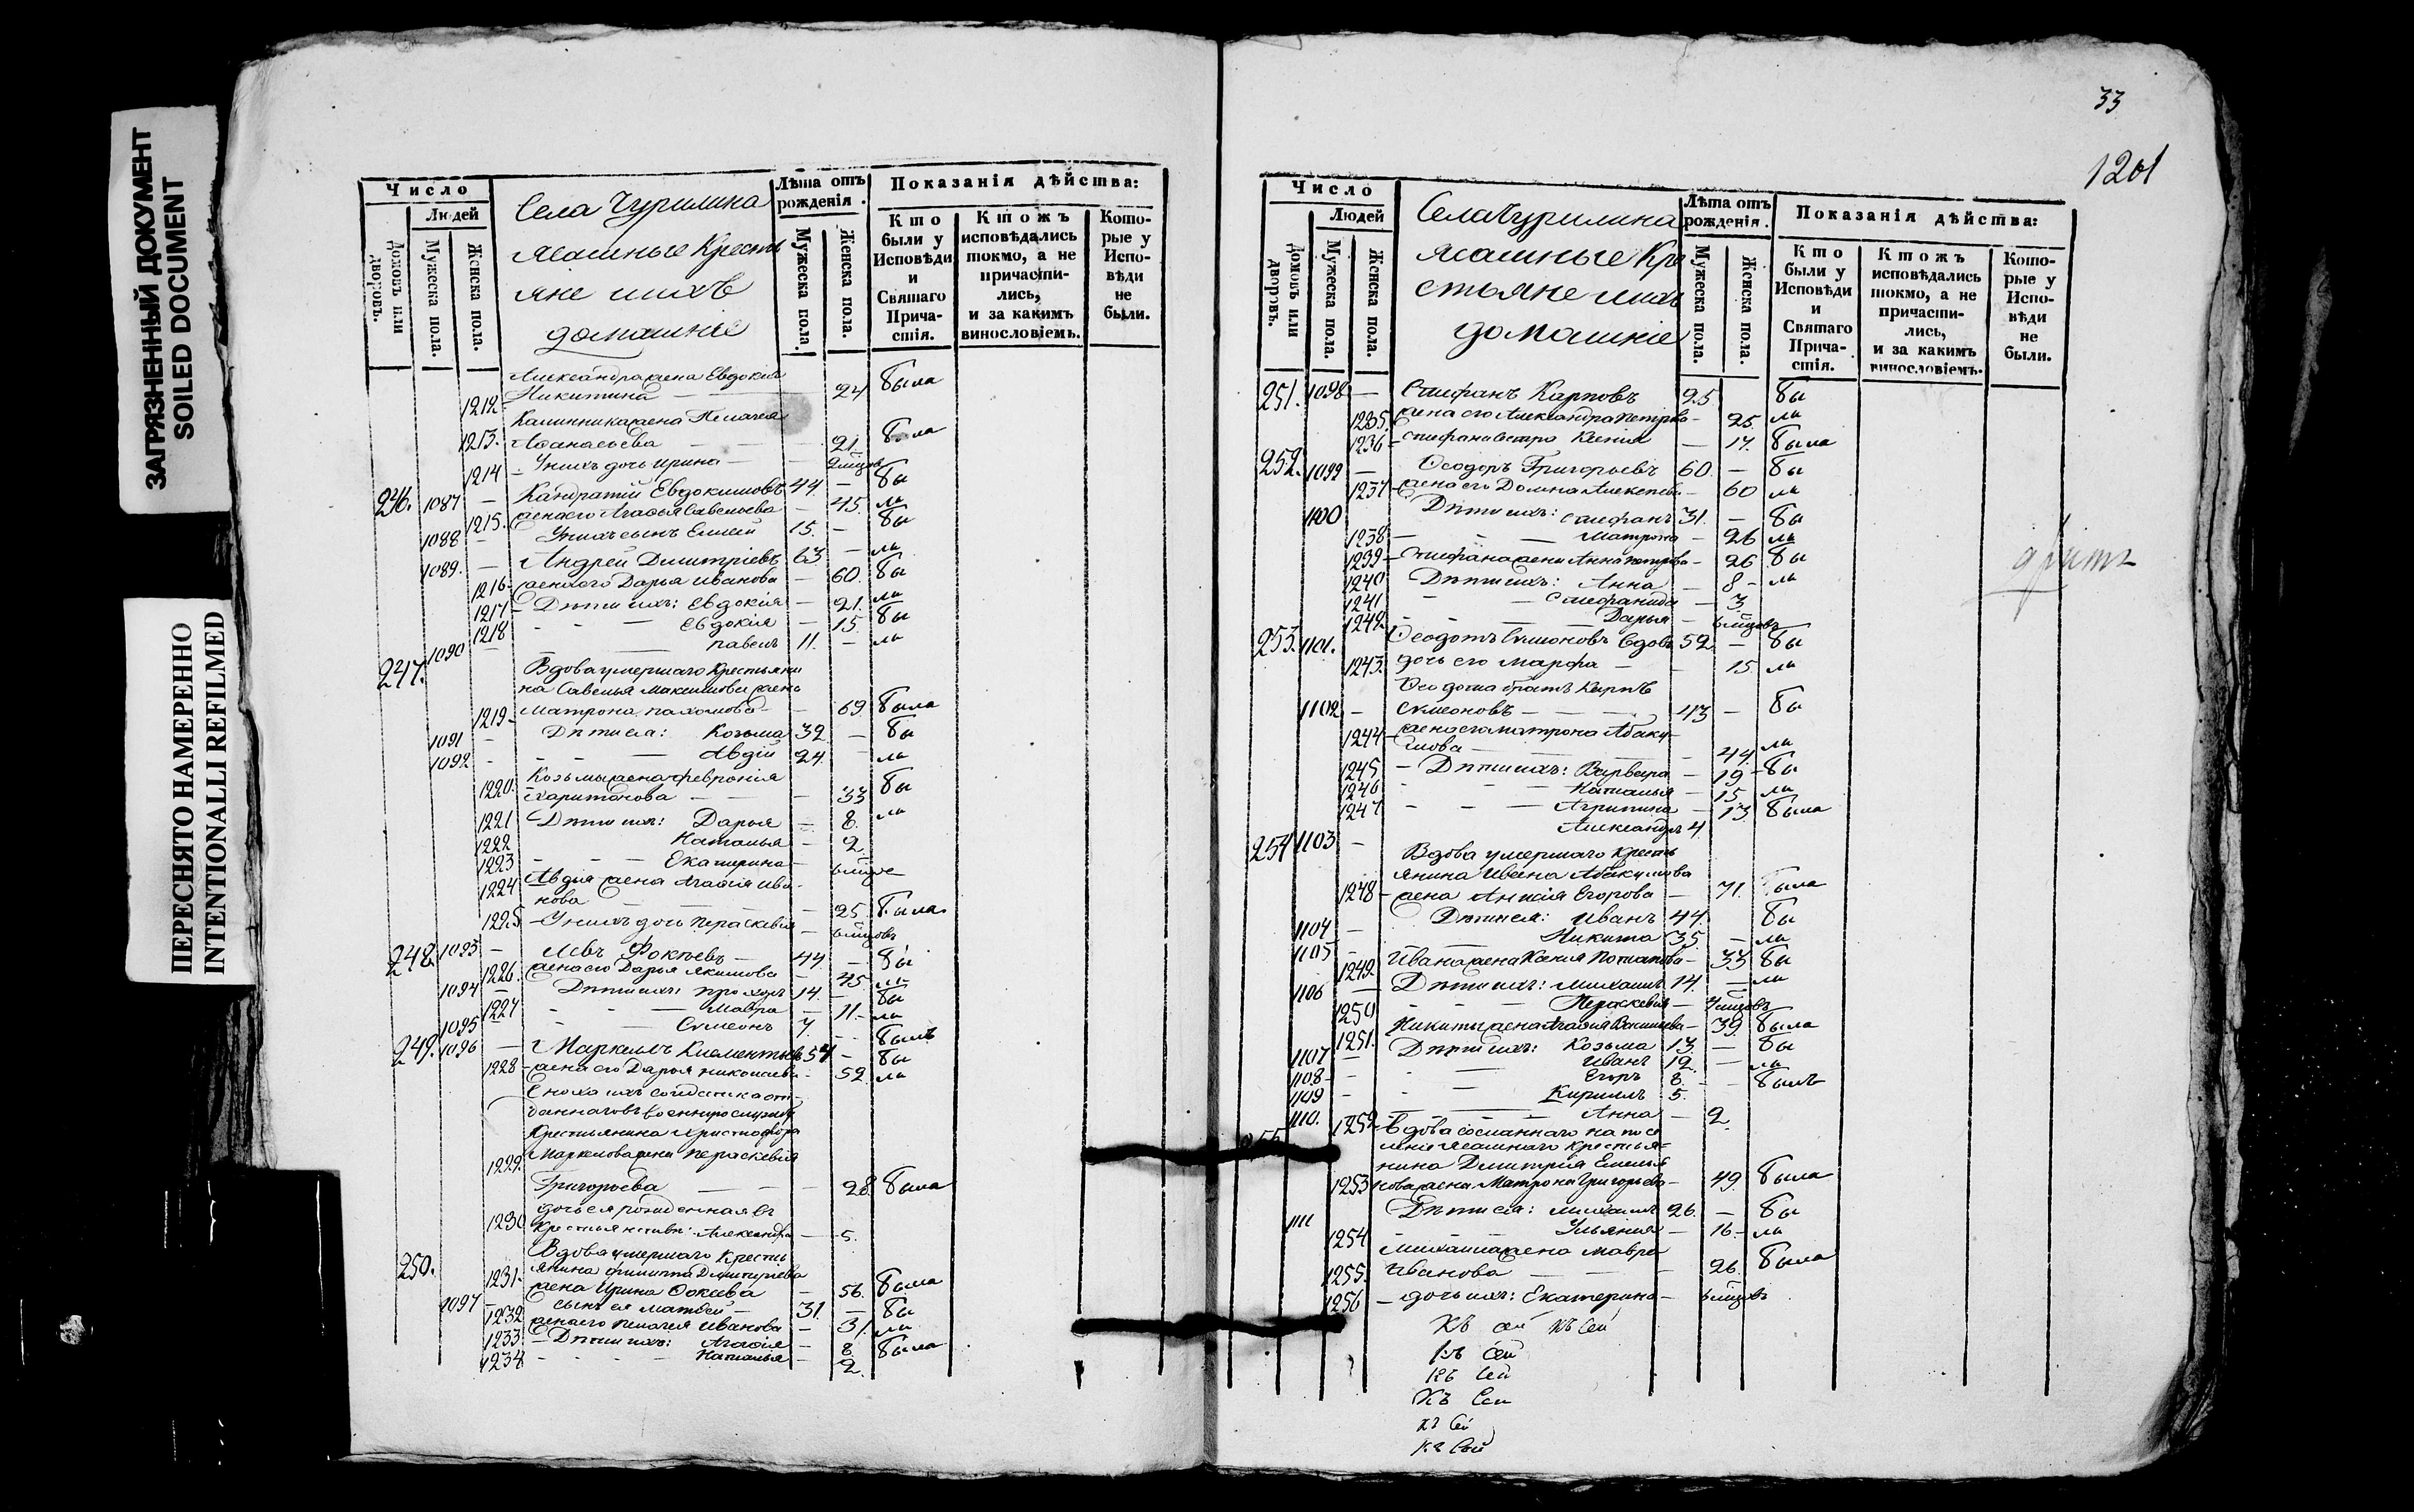 ЗАГРЯЗНЕННЫЙ ДОКУМЕНТ
SOILED DOCUMENT
ПЕРЕСНЯТО НАМЕРЕННО
INTENTIONALLI REFILMED
Число
Людей
Домовъ или дворовъ.
Мужеска пола.
Женска пола.
Села Чурилина
ясашные Кресть
яне и ихъ
домашніе
Лѣта отъ рожденія.
Мужеска пола.
Женска пола.
Показанія дѣйства:
Кто были у Исповѣди и Святаго Причастія.
Ктожъ исповѣдались токмо, а не причастились, и за какимъ винословіемъ.
Которые у Исповѣди не были.
Александра жена Евдокія
1212 Никитина — 24 была
Калинника жена Пелагея
1213. Афанасьева — 21 была
1214 — У нихъ дочь Ирина — 2 мцов
246. 1087 — Кандратій Евдокимовъ 44 — бы
1215. жена его Агафья Савельева — 45. ли
1088 — У нихъ сынъ Елисей 15. — бы
1089. — Андрей Димитріевъ 63 — ли
1216 жена его Дарья Иванова — 60. бы
1217 — Дѣти ихъ: Евдокія — 21. ли
1218 — Евдокія — 15. бы
1090 — павелъ 11. — ли
247. Вдова умершаго Крестьяни
на Савелья Максимова жена
1219 Матрона пахомова — 69 была
1091 — Дѣти ея: Козьма 32 — бы
1092 — Авдій 24 — ли
Козьмы жена Февронія
1220. Харитонова — 33 бы
1221 Дѣти ихъ: Дарья — 8. ли
1222 Наталья — 2
1223 — Екатерина —
1224 Авдія жена Агафія Ива
нова — 25 была
1225 — У нихъ дочь Параскевія — мцовъ
248. 1093 — Левъ Фокѣевъ — 44 — бы
1226. жена его Дарья Якимова — 45. ли
1094 — Дѣти ихъ: Прохоръ 14. — бы
1227 — Мавра — 11 — ли
1095 — Симеонъ 7. — былъ
249. 1096 — Маркеллъ Клементьевъ 54 — бы
1228 — жена его Дарья николаева — 52. ли
Сноха ихъ солдатка от
даннаго въ военную службу
Крестьянина Христофора
Маркелова жена Параскевія
1229. Григорьева — 28. была
дочь ея рожденная въ
1230 крестьянствѣ: Александра — 5.
250. Вдова умершаго Кресть
янина филиппа Димитріева
1231. жена Ирина Фокеева — 56. была
1097 — сынъ ея Матвей — 31. — бы
1232 жена его Пелагея Иванова — 31. ли
1233 — Дѣти ихъ: Агафія — 8 была
1234 — Наталья — 2.
33
1201
Число
Людей
Домовъ или дворовъ.
Мужеска пола.
Женска пола.
Села Чурилина
ясашные Кре
стьяне и ихъ
домашніе
Лѣта отъ рожденія.
Мужеска пола.
Женска пола.
Показанія дѣйства:
Кто были у Исповѣди и Святаго Причастія.
Ктожъ исповѣдались токмо, а не причастились, и за какимъ винословіемъ.
Которые у Исповѣди не были.
251. 1098 — Стефанъ Карповъ 25 бы
1235. жена его Александра Петрова — 25. ли
1236 — Стефана сестра Ксенія — 17. была
252. 1099 — Феодоръ Григорьевъ 60 — бы
1237 жена его Домна Алексеева — 60 ли
1100 Дѣти ихъ: Стефанъ 31. — бы
1238 — Матрона — 26 ли
1239 — Стефана жена Анна петрова — 26 бы
1240 Дѣти ихъ: Анна — 8 — ли
1241 — Стефанида — 3
1242 — Дарья — мцовъ
253. 1101. Феодотъ Симоновъ вдовъ 52 — бы
1243. дочь его Марфа — 15 ли
Феодота братъ Карпъ
1102 — Симеоновъ — 43 — бы
1244 — жена его Матрона Абаку
мова — 44 ли
1245 — Дѣти ихъ: Варвара — 19 — бы
1246 — Наталья — 15 ли
1247 — Агрипина — 13 была
Александръ 4
254 1103 — Вдова умершаго Кресть
янина Ивана Абакумова
1248 — жена Анисія Егорова — 71. была
1104 — Дѣти ея: Иванъ 44. бы
1105 — Никита 35. — ли
1249. Ивана жена Ксенія Потапова — 33 бы
1106 — Дѣти ихъ: Михаилъ 14. — ли
1250 — Параскевія — мцовъ
1251. Никиты жена Агафія — 39 была
1107 — Дѣти ихъ: Козьма 13 — бы
1108 — Иванъ 12 — ли
1109 — Егоръ 8. — былъ
1110. — Кириллъ 5.
1252 — Анна — 2
255 Вдова сосланнаго на посе
леніе ясашнаго крестья
нина Димитрія Емелья
1253 нова жена Матрона Григорьева — 49. была
1111 Дѣти ея: Михаилъ 26. — бы
1254 — Ульянія — 16 — ли
Михаила жена Мавра
1255. Иванова — 26. была
1256 — дочь ихъ: Екатерина — мцовъ
Къ сей къ сей
Къ сей
Къ Сей
Къ Сей
Къ Сей
Къ Сей